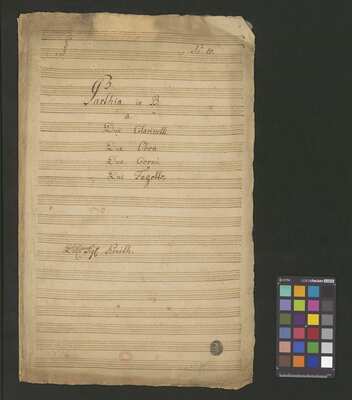 No. 10.
Parthia in B
a
Due Clarinetti
Due Oboe
Due Corni
Due Fagotti.
Del Sigl